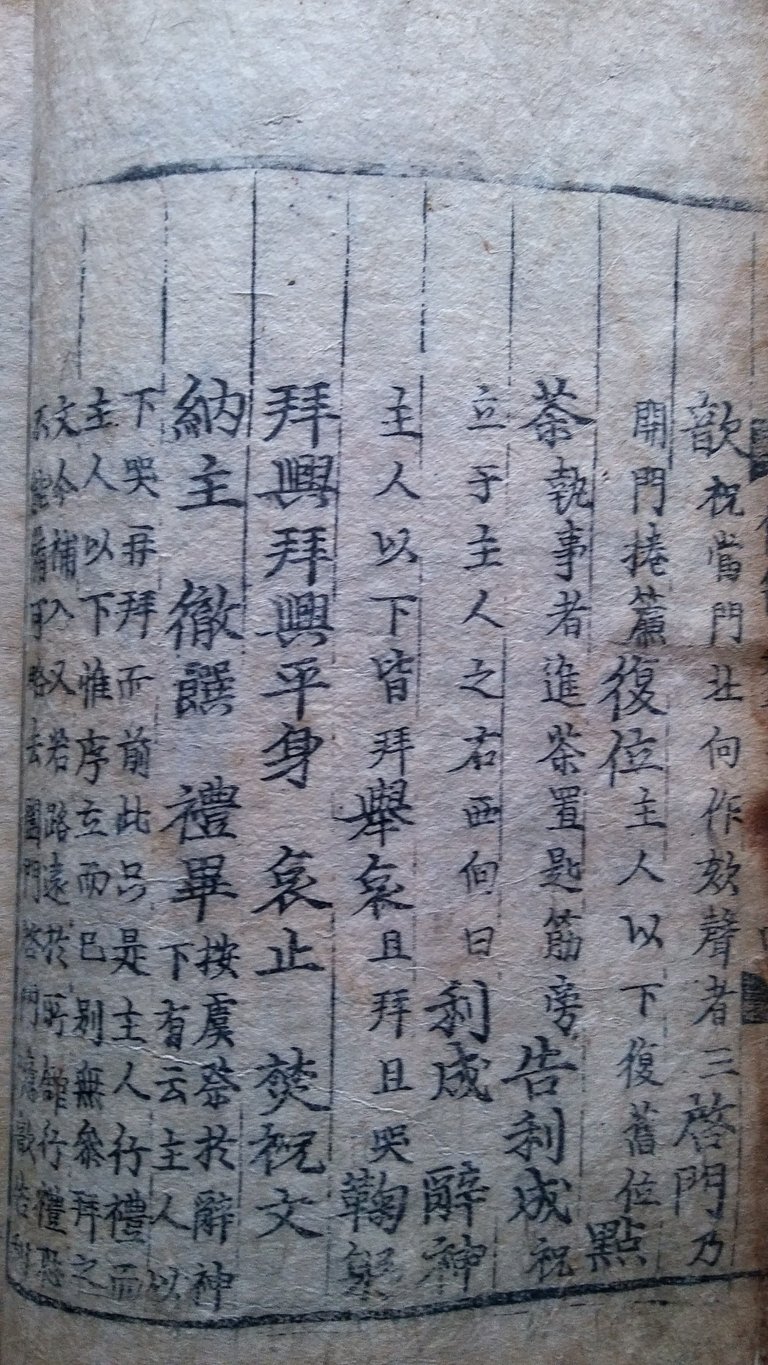 歆祝當門北向作欬聲者三啓門乃
開門捲簾復位主人以下復舊位點
茶執事者進茶置匙筯旁告利成祝
立于主人之右西向曰利成辭神
主人以下皆拜舉哀且拜且哭鞠躬
拜興拜興平身哀止焚祝文
納主徹饌禮畢按虞祭於辭神
下有云主人以
下哭再拜而前此只是主人行禮而
主人以下惟序立而已别無參拜之
文今補入又若路遠於所館行禮恐
不能備可略去闔門啓門噫歆告利